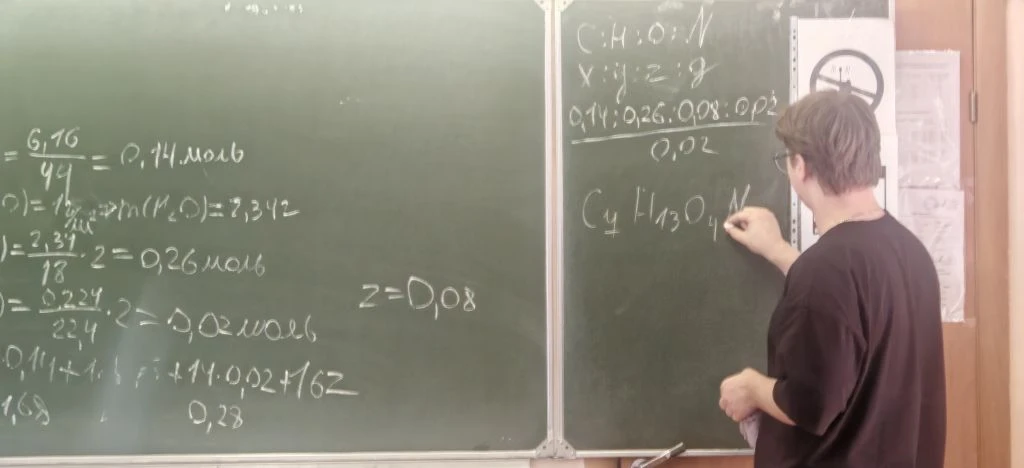 = 6,16 / 44 = 0,14 моль
O) = 1 => m(H₂O) = 2,342
) = 2,34 / 18 · 2 = 0,26 моль
) = 0,224 / 22,4 · 2 = 0,02 моль
0,14 + 1 + 14 · 0,02 + 16z
1,68 0,28
z = 0,08
C : H : O : N
x : y : z : g
0,14 : 0,26 : 0,08 : 0,02
0,02
C₇ H₁₃ O₄ N